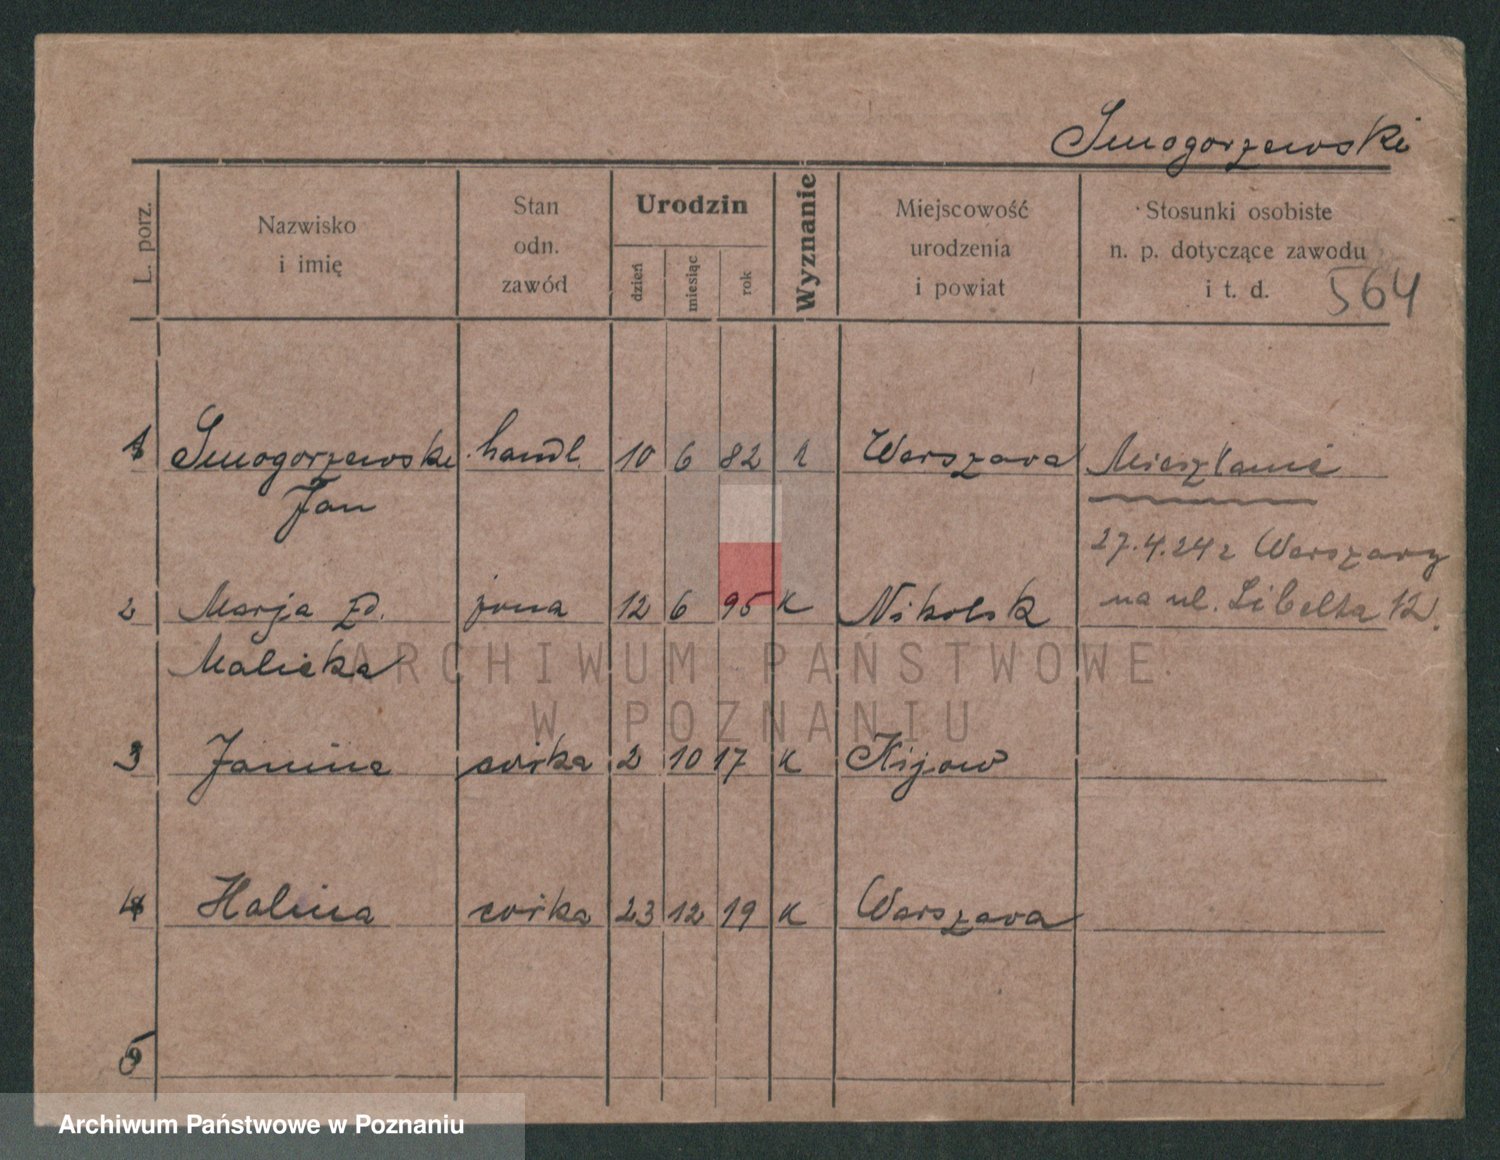 Smogorzewski
L. porz.
Nazwisko i imię
Stan odn. zawód
Urodzin
dzień
miesiąc
rok
Wyznanie
Miejscowość urodzenia i powiat
Stosunki osobiste n. p. dotyczące zawodu i t. d.
564
1 Smogorzewski handl. 10 6 82 Warszawa Mieszkanie
Jan
27.4.24 z Warszawy
2 Marja zd. żona 12 6 95 K Nikolsk na ul. Libelta 12.
Malicka
3 Janina córka 2 10 17 K Kijow
4 Halina córka 23 12 19 K Warszawa
5
ARCHIWUM PAŃSTWOWE
W POZNANIU
Archiwum Państwowe w Poznaniu